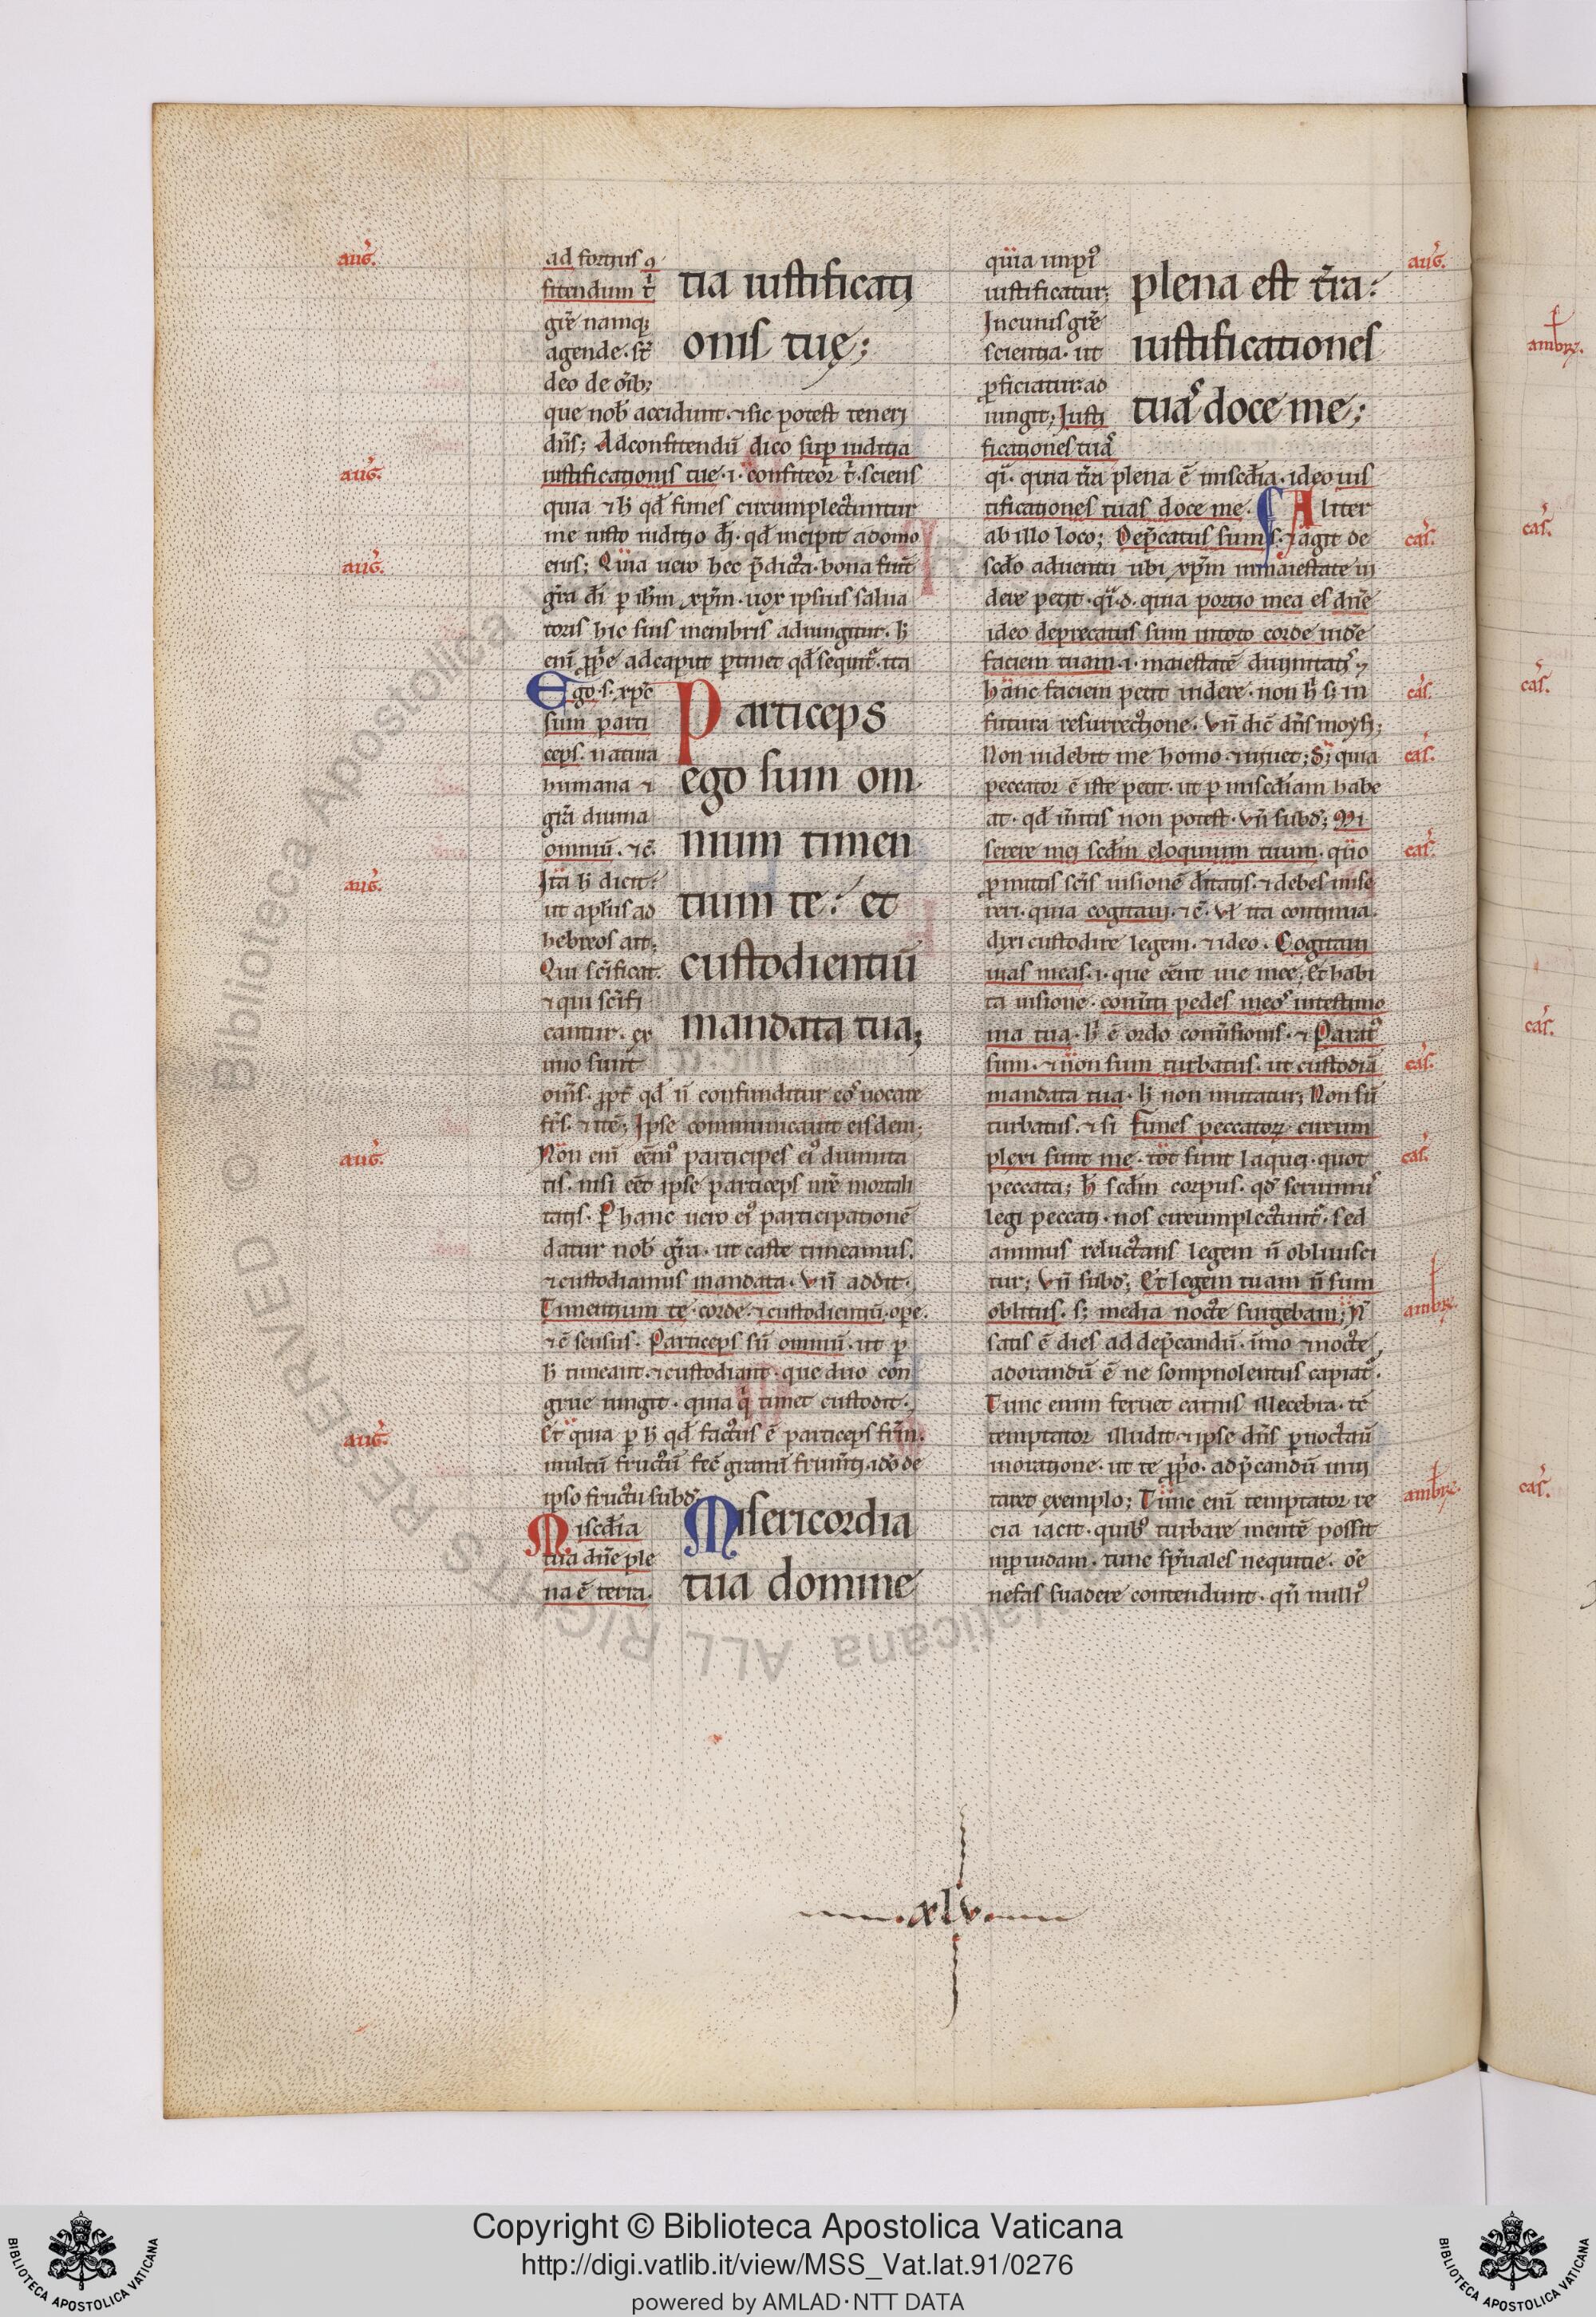 aug.
ad fortius ꝯ
fitendum t̄
grē namq;
agende. st̄
deo de oīb;
que nob̄ accidunt. ⁊ sic potest teneri
dn̄s; Ad confitendū dico sup iuditia
aug.
iustificationis tue. i. confiteor t̄. sciens
quia ⁊ h̄ qd̄ funes circumplectuntur
me iusto iuditio dī. qd̄ incipit a domo
aug.
eius; Quia uero hec p̄dicta. bona sunt
grā dī p ih̄m xp̄m. uox ipsius salua
toris hic suis membris adiungitur. h̄
enī ꝓp̄e ad caput ptinet qd̄ sequit̄. ita
tia iustificati
onis tuę;
Ego. s. xp̄c
sum parti
ceps. natura
humana ⁊
grā diuina
omniū. ⁊c̄.
aug.
Ita h̄ dicit:
ut apl̄us ad
hebreos ait;
Qui scīficat.
⁊ qui scīfi
cantur. ex
uno sunt
Particeps
ego sum om
nium timen
tium te: et
custodientiū
mandata tua;
om̄s. ꝓpt̄ qd̄ n̄ confunditur eos uocare
fr̄s. ⁊ itē; Ipse communicauit eisdem;
aug.
Non enī eēm̄ participes ei᾿ diuinita
tis. nisi eēt ipse particeps nr̄e mortali
tatis. P hanc uero ei᾿ participationē
datur nob̄ grā. ut caste timeamus.
⁊ custodiamus mandata. Vn̄ addit.
Timentium te. corde. ⁊ custodientiū. ope.
⁊ ē sensus. Particeps sū omniū. ut p
h̄ timeant. ⁊ custodiant. que duo con
grue iungit. quia q̄ timet custodit.
aug.
Et quia p h̄ qd̄ factus ē particeps fr̄m.
multū fructū fec̄ granū frum̄ti. ido de
ipso fructu subd̄.
Miscd̄ia
tua dn̄e ple
na ē terra.
Misericordia
tua domine
aug.
quia impi᾿
iustificatur;
In cuius grē
scientia. ut
ꝓficiatur. ad
iungit; Iusti
ficationes tuas
plena est tr̄a:
iustificationes
tuas doce me;
qī. quia tr̄a plena ē miscd̄ia. ideo ius
tificationes tuas doce me. Aliter
cas.
ab illo loco; Dep̄catus sum. ⁊ agit de
scdo aduentu ubi xp̄m in maiestate ui
dere petit. qī. d. quia portio mea es dn̄e
ideo deprecatus sum in toto corde uide
faciem tuam. i. maiestatē diuinitatis. ⁊
cas.
hanc faciem petit uidere. non h̄ s; in
futura resurrectione. Vn̄ dic̄ dn̄s moysi;
cas.
Non uidebit me homo ⁊ uiuet; S; quia
peccator ē iste petit. ut p miscd̄iam habe
at. qd̄ m̄itis non potest. vn̄ subd̄; Mi
cas.
serere mei scdm eloquium tuum. quo
ꝓmittis scīs uisionē dītatis. ⁊ debes mise
reri. quia cogitaui. ⁊c̄. Vl̄ ita continua.
dixi custodire legem. ⁊ ideo. Cogitaui
uias meas. i. que eēnt uie mee; Et habi
ta uisione. conūti pedes meos in testimo
nia tua. h̄ ē ordo conūsionis. ⁊ Parat᾿
cas.
sum. ⁊ non sum turbatus. ut custodiā
mandata tua. h̄ non mutatur; Non sū
turbatus. ⁊ si Funes peccatorꝝ circum
cas.
plexi sunt me. tot sunt laquei. quot
peccata; h̄ scdm corpus. qd̄ seruim᾿
legi peccati. nos circumplectunt̄. sed
animus reluctans legem n̄ obliuisci
tur; Vn̄ subd̄; Et legem tuam n̄ sum
ambꝛ.
oblitus. s; media nocte surgebam; N̄
satis ē dies ad dep̄candū. immo ⁊ nocte
adorandū ē ne sompnolentus capiat̄.
Tunc enim feruet carnis illecebra. tē
temptator illudit ⁊ ipse dn̄s pnoctauit
in oratione. ut te ꝓp̄o. ad p̄candū inui
ambꝛ.
taret exemplo; Tunc enī temptator re
cia iacit. quib᾿ turbare mentē possit
inꝓuidam. tunc sp̄uales nequitie. oē
nefas suadere contendunt. qn̄ nulli᾿
xlv
ambꝛ.
cas.
cas.
cas.
cas.
© Biblioteca Apostolica Vaticana ALL RIGHTS RESERVED
Copyright © Biblioteca Apostolica Vaticana
http://digi.vatlib.it/view/MSS_Vat.lat.91/0276
powered by AMLAD·NTT DATA
BIBLIOTECA APOSTOLICA VATICANA
BIBLIOTECA APOSTOLICA VATICANA